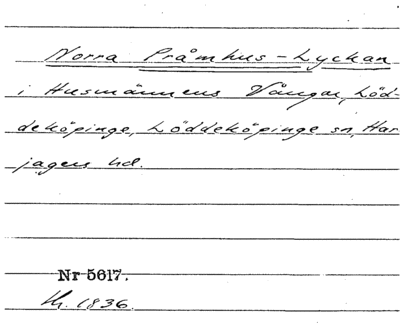 Norra Pråmhus-Lyckan
i Husmännens Vångar, Löd-
deköpinge, Löddeköpinge sn, Har
jagers hd.
Nr 5617.
1836.